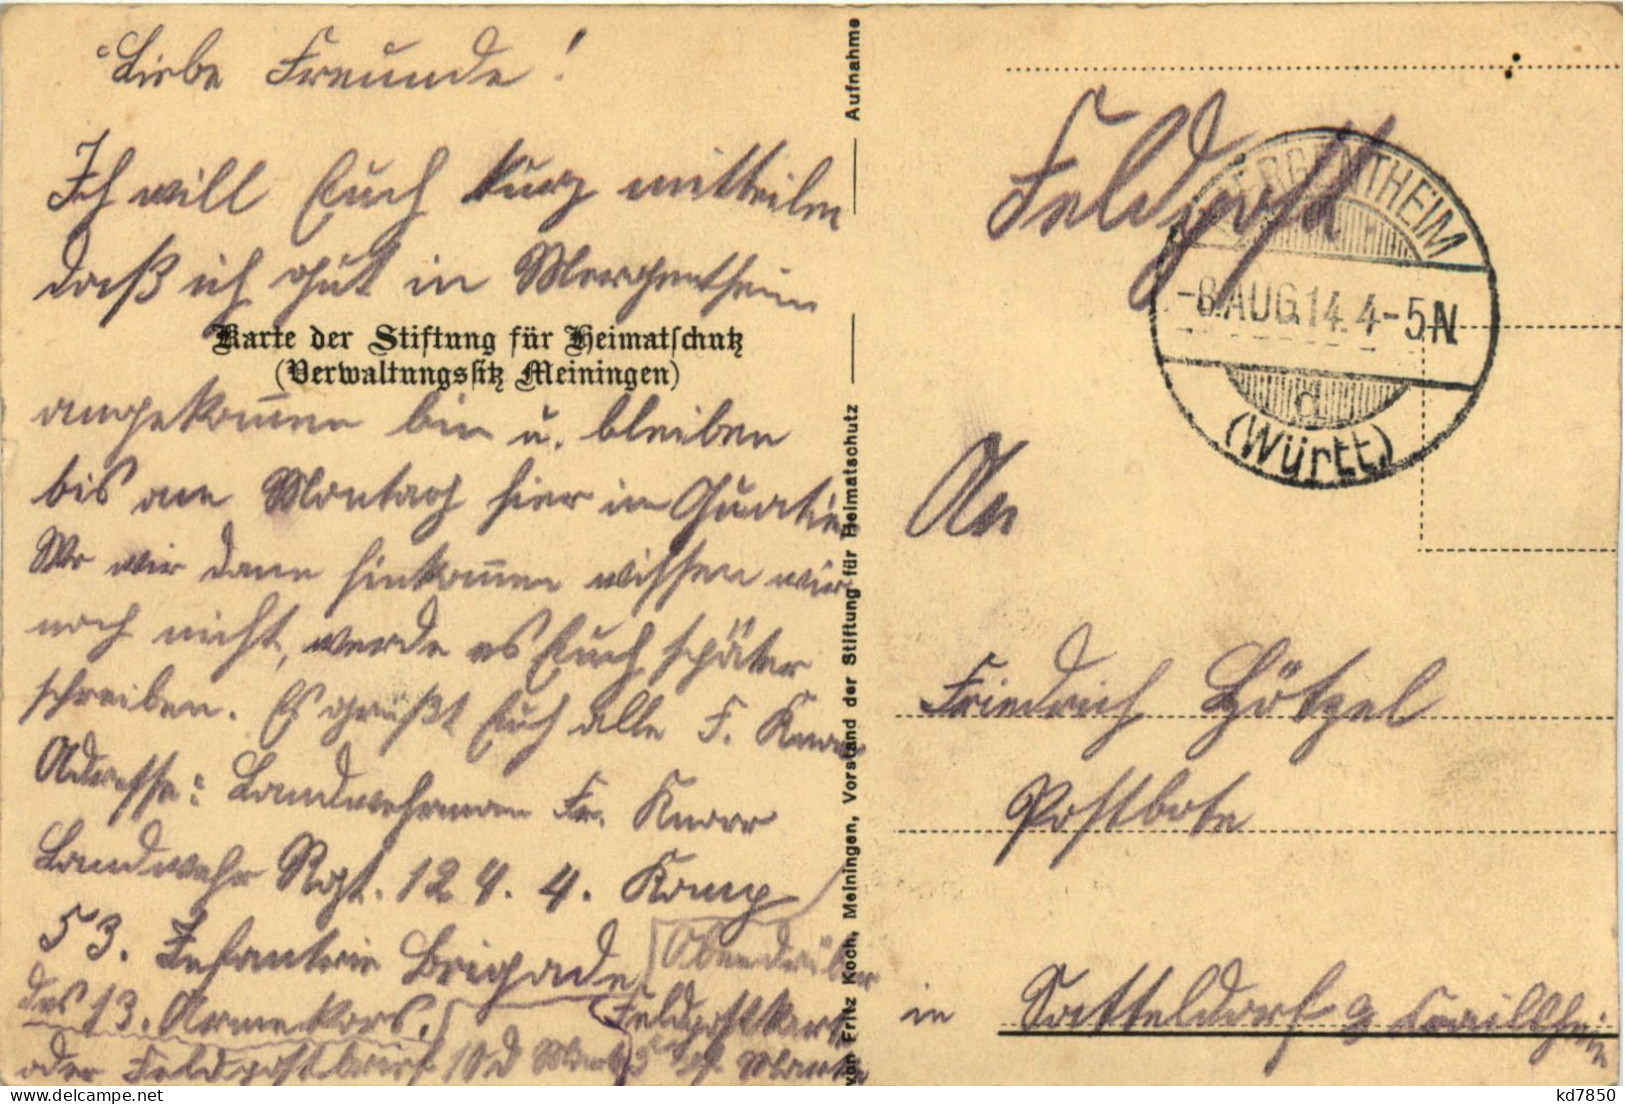 Liebe Freunde!
Ich will Euch kurz mitteilen
daß ich gut in Mergentheim
Karte der Stiftung für Heimatschutz
(Verwaltungssitz Meiningen)
angekom̅en bin u. bleiben
bis am Montag hier in Quatier
Wo wir dann hinkom̅en wissen wir
noch nicht, werde es Euch später
schreiben. Es grüßt Euch alle F. Knorr
Adresse: Landwehrmann Fr. Knorr
Landwehr Rgt. 124. 4. Komp
53. Infanterie Brigade
des 13. Armekors.
Obendrüber
Feldpostkarte
oder Feldpostbrief
Aufnahme
von Fritz Koch, Meiningen, Vorstand der Stiftung für Heimatschutz
Feldpost
MERGENTHEIM
-8.AUG.14.4-5N
d
(Württ)
An
Friedrich Hötzel
Postbote
in Satteldorf
kd7850